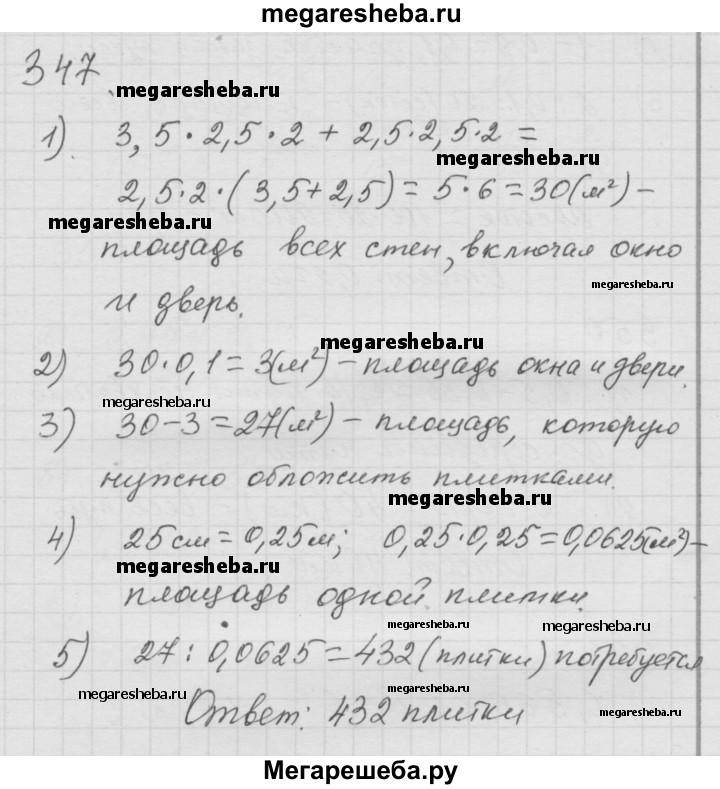 megaresheba.ru
347
megaresheba.ru
1). 3,5·2,5·2 + 2,5·2,5·2 =
megaresheba.ru
2,5·2·(3,5+2,5) = 5·6 = 30(м²) –
megaresheba.ru
площадь всех стен, включая окно
megaresheba.ru
и дверь.
megaresheba.ru
2) 30·0,1 = 3(м²) – площадь окна и двери.
megaresheba.ru
3) 30–3 = 27(м²) – площадь, которую
нужно обложить плитками.
megaresheba.ru
4) 25см = 0,25м; 0,25·0,25 = 0,0625(м²) –
megaresheba.ru
площадь одной плитки.
megaresheba.ru
5) 27 : 0,0625 = 432 (плитки) потребуется
megaresheba.ru
megaresheba.ru
Ответ: 432 плитки
megaresheba.ru
Мегарешеба.ру